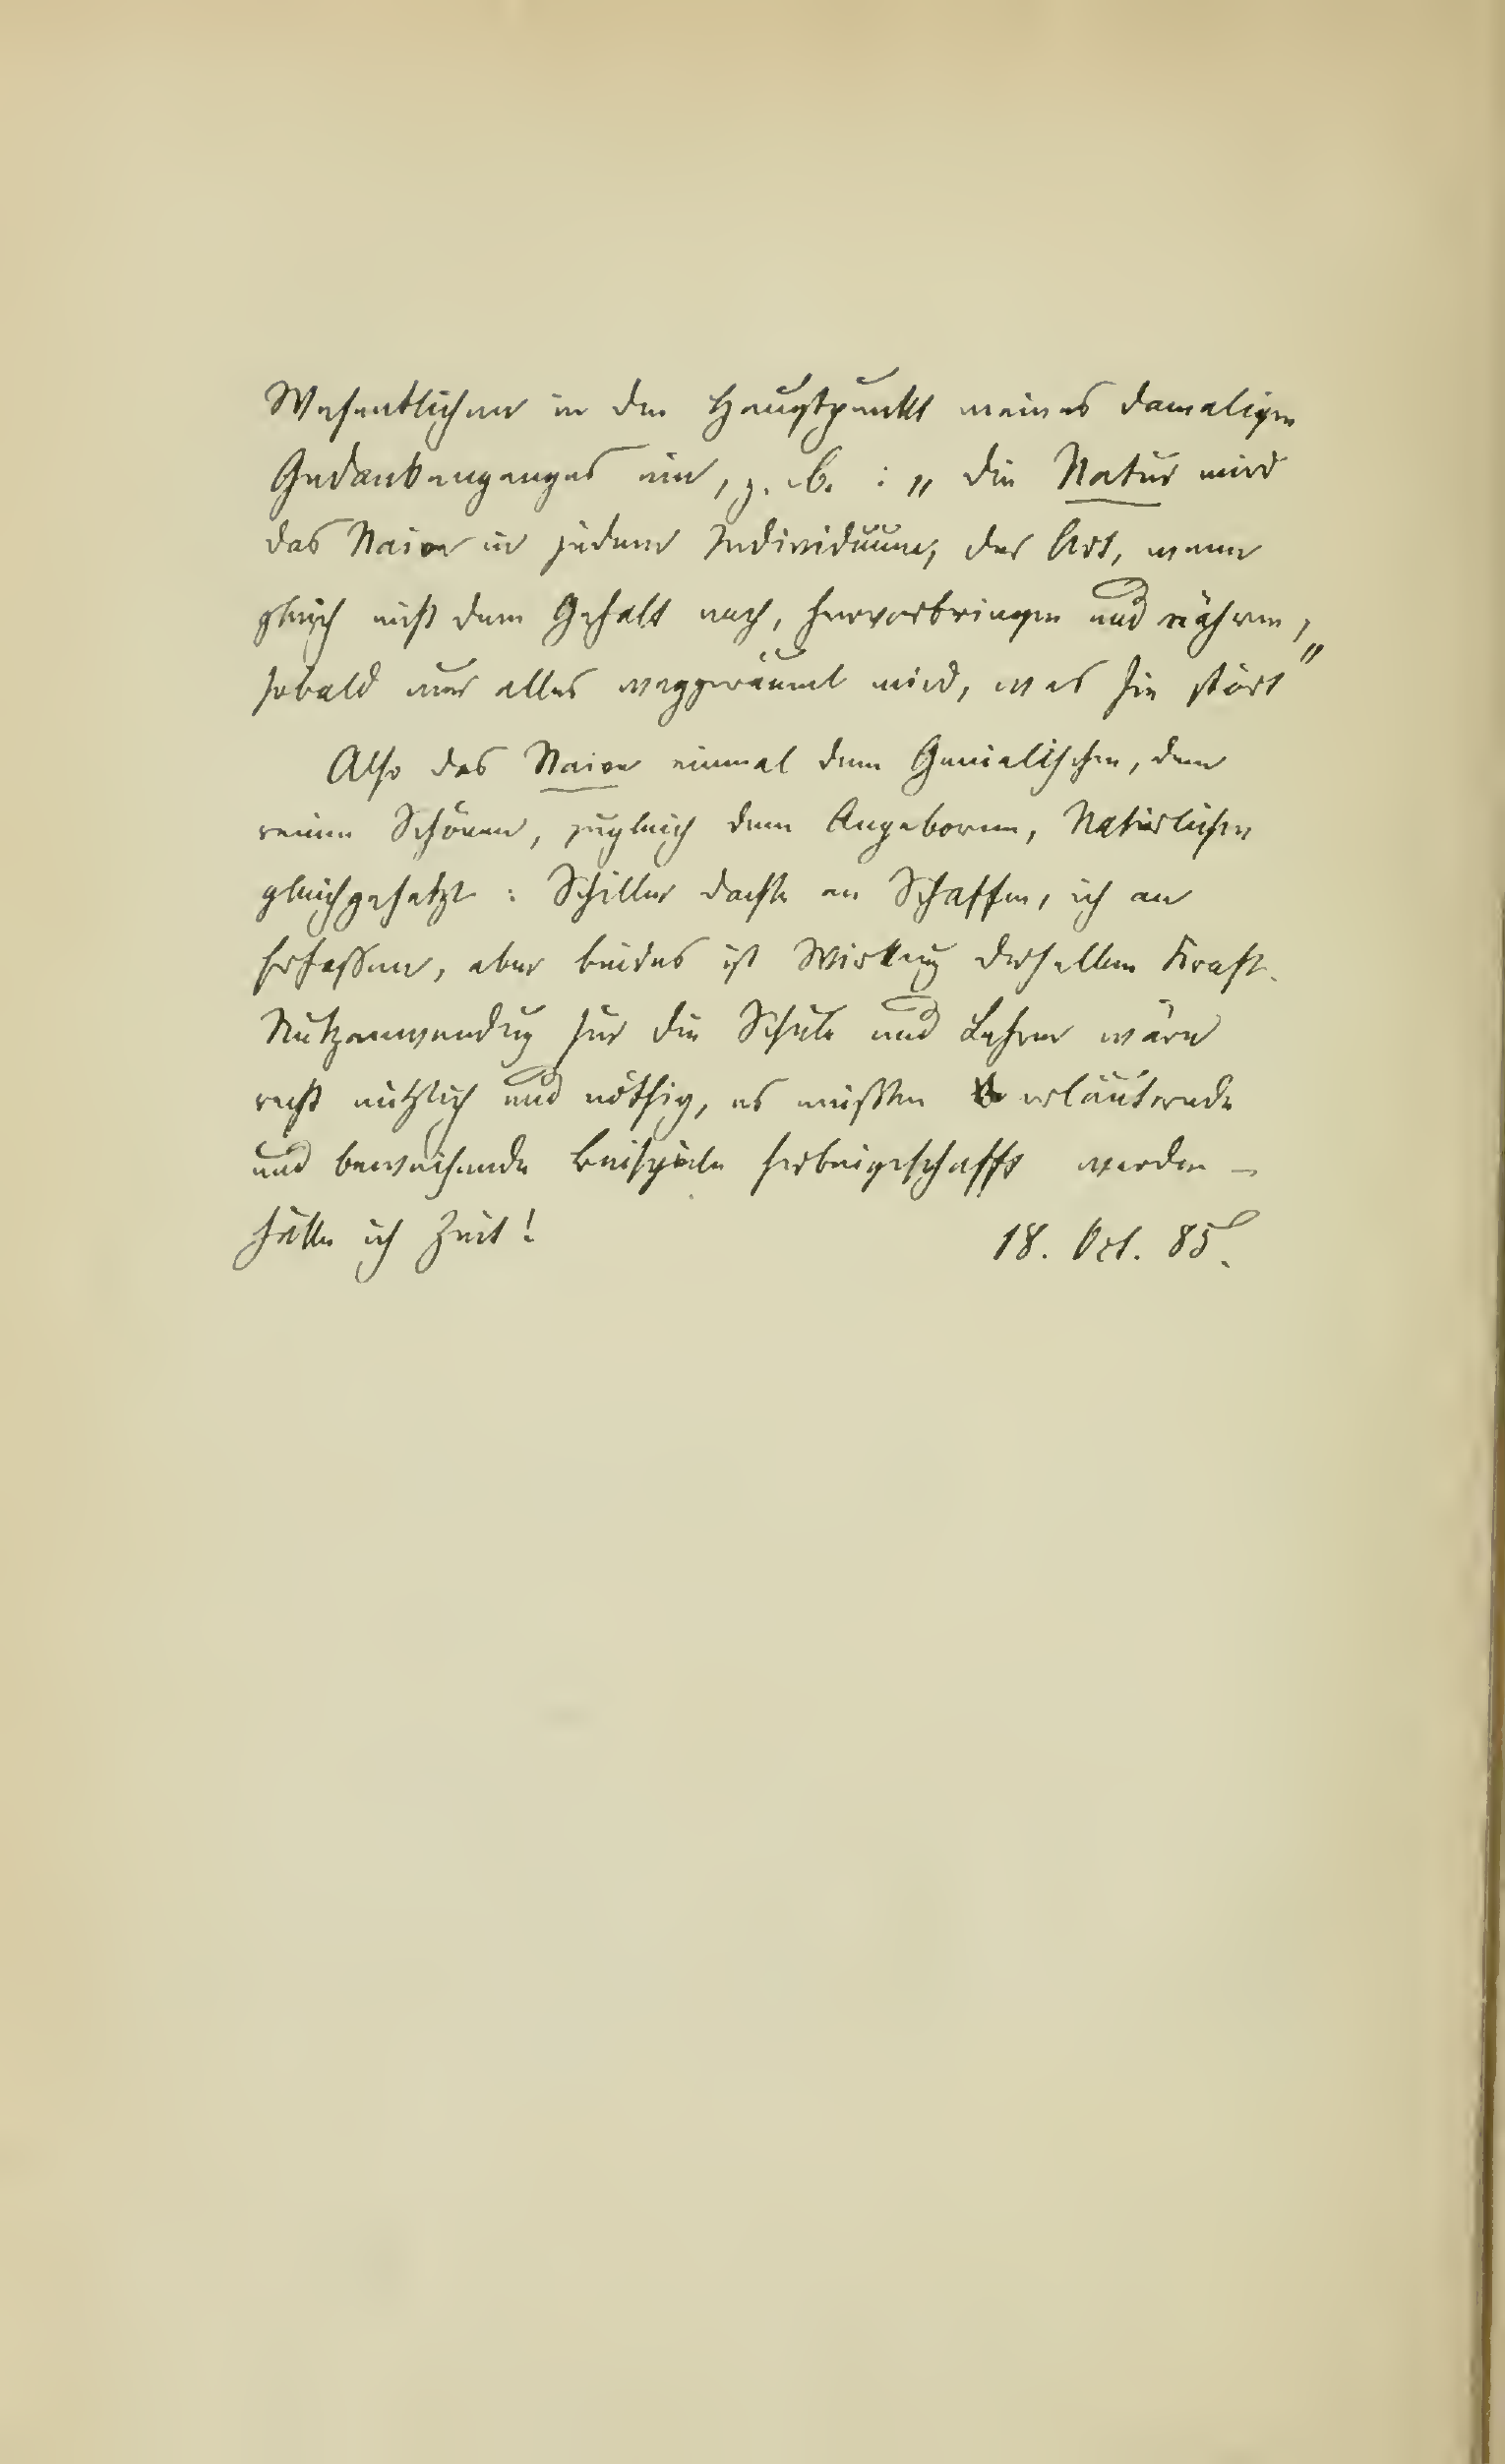 Wesentlichen in den Hauptpunkt meines damaligen
Gedankenganges ein, z. B. : „die Natur wird
das Naive in jedem Individuum, der Art, wenn
gleich nicht dem Gehalt nach, hervorbringen und nähren,
sobald nur alles weggeräumt wird, was sie stört"
Also das Naive einmal dem Genialischen, dem
reinen Schönen, zugleich dem Angebornen, Natürlichen
gleichgesetzt : Schiller dachte an Schaffen, ich an
Erfassen, aber beides ist Wirkung derselben Kraft.
Nutzanwendung für die Schule und Lehrer wäre
recht nützlich und nöthig, es müßten erläuternde
und beweisende Beispiele herbeigeschafft werden –
hätte ich Zeit! 18. Oct. 85.